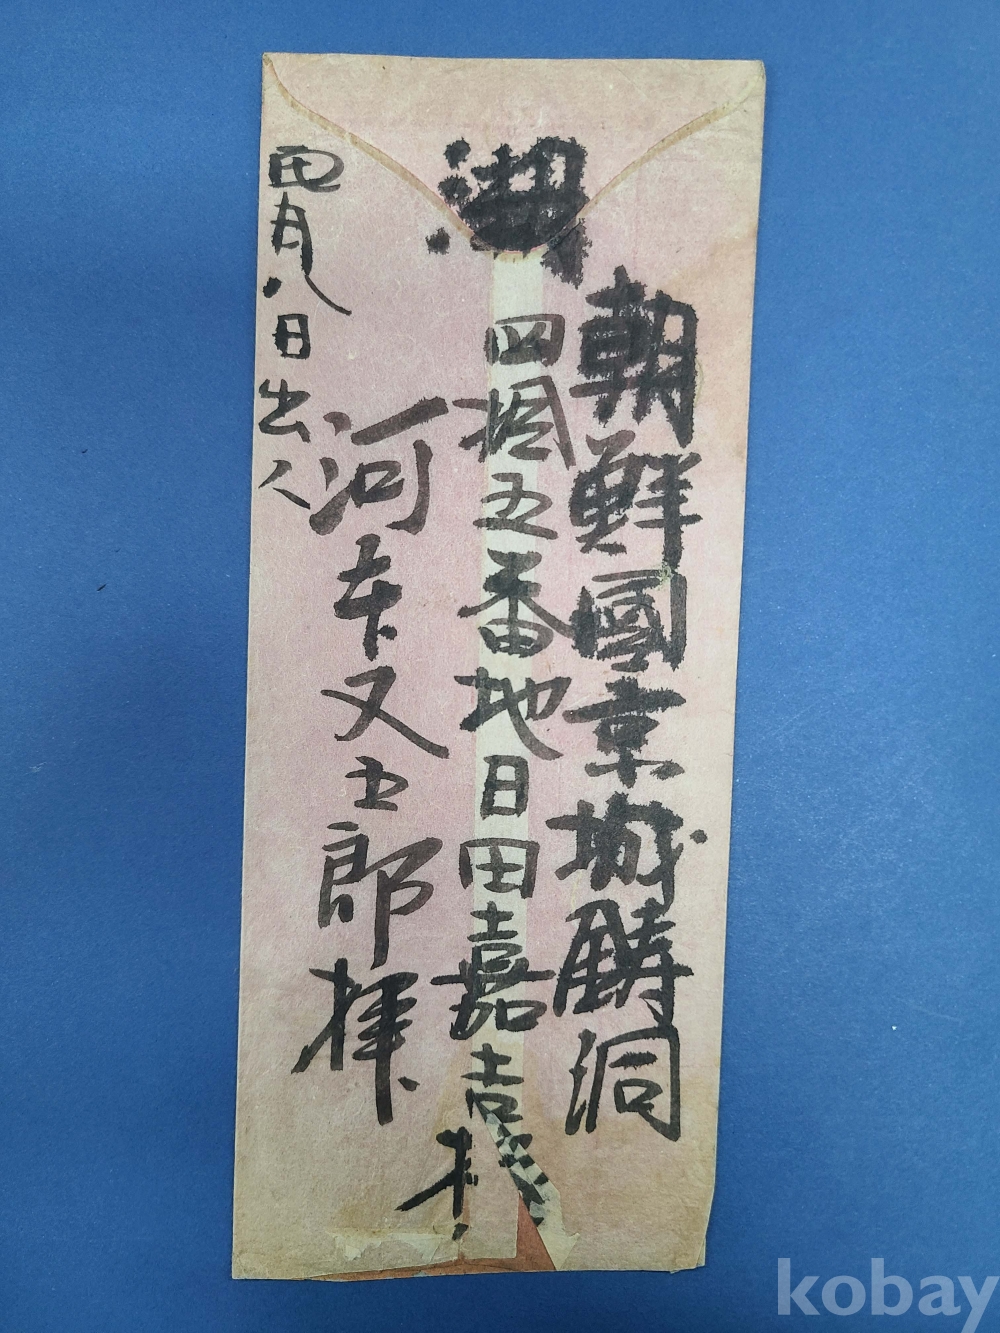 朝鮮國京城鑄洞
四拾五番地日田嘉吉
河本又五郎拝
四月八日出ス
kobay